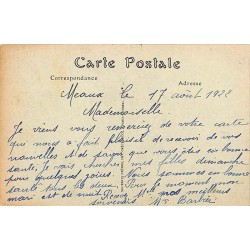 Carte Postale
Correspondance
Adresse
Meaux le 17 août 1922
Mademoiselle
Je viens vous remercier de votre carte
qui nous a fait plaisir de recevoir de vos
nouvelles et de savoir que vous êtes en bonne
santé, je vais chercher mes filles dimanche
pour quelques jours. Nous sommes en bonne
santé tous les deux. Pour le moment mon
mari et de moi meilleurs
souvenirs
Mme Barbier